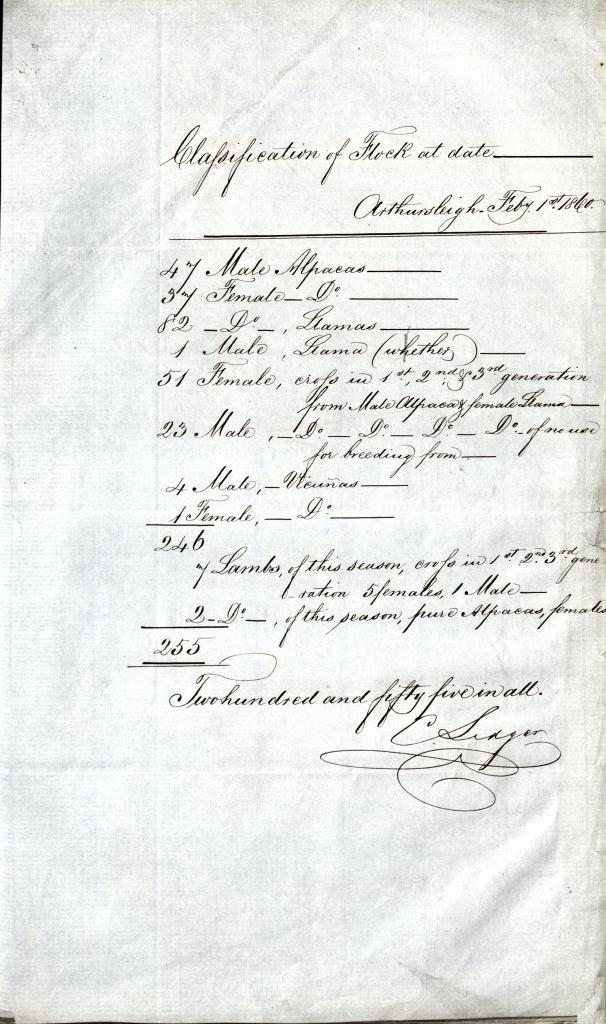 Classification of Flock at date
Arthursleigh. Feby. 1st. 1860.
47 Male Alpacas
37 Female - Do.
82 - Do. - , Llamas
1 Male , Llama (whether)
51 Female, cross in 1st., 2nd. & 3rd generation
from Male Alpaca & female Llama
23 Male , - Do. - Do. - Do. - Do. - of no use
for breeding from
4 Male, - Vicuñas
1 Female, - Do.
246
7 Lambs, of this season, cross in 1st. 2nd. 3rd. gene
- ration 5 females, 1 Male
2 - Do. - , of this season, pure Alpacas, females
255
Two hundred and fifty five in all.
C. Ledger